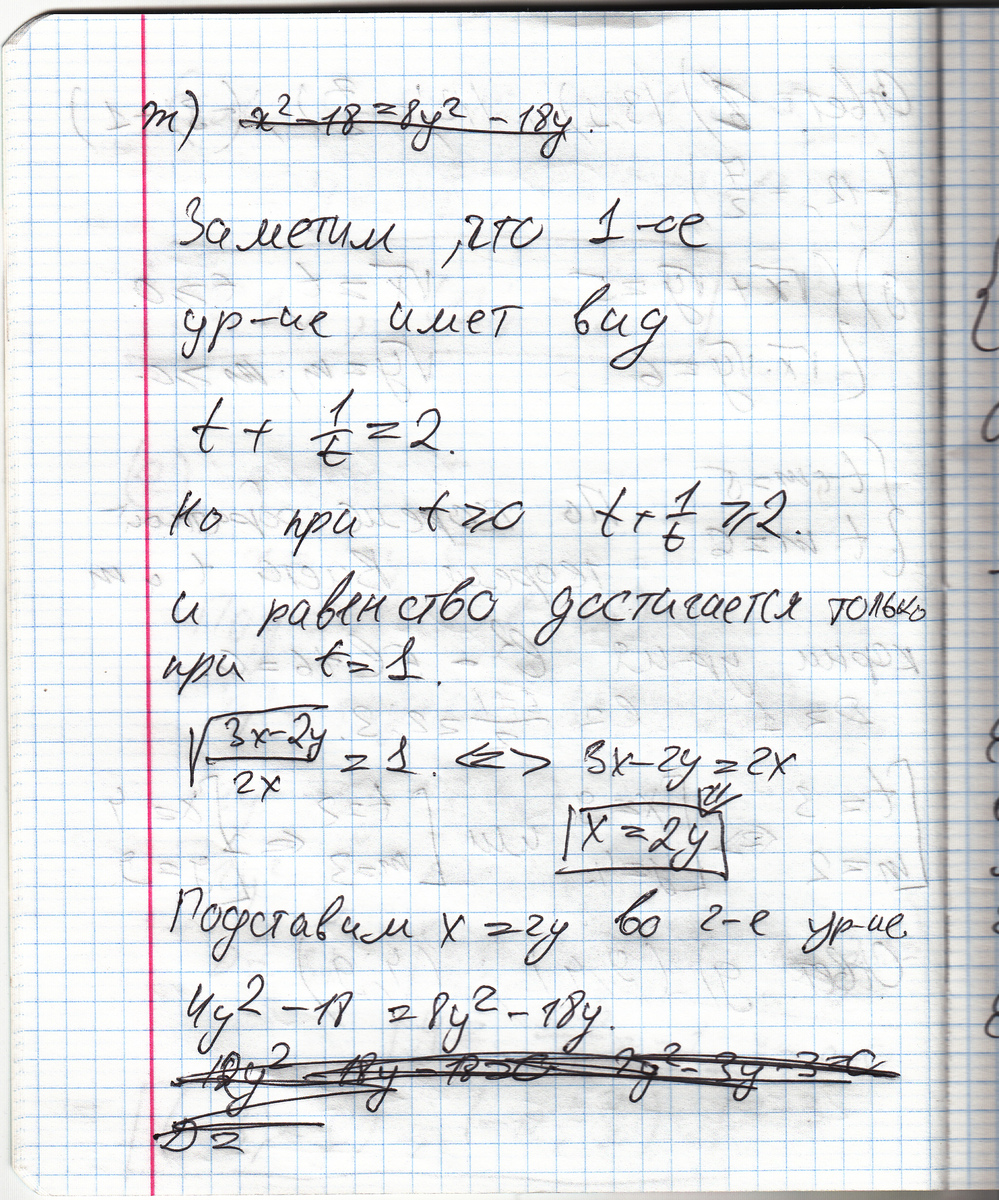 ж) x² - 18 = 8y² - 18y.
Заметим, что 1-ое
ур-ие имет вид
t + 1/t = 2.
Но при t ≥ 0 t + 1/t ≥ 2.
и равенство достигается только
при t = 1.
√(3x-2y)/2x = 1. <=> 3x-2y = 2x
x = 2y
Подставим x = 2y во 2-е ур-ие.
4y² - 18 = 8y² - 18y.
12y² - 18y - 18 = 0 2y² - 3y - 3 = 0
D =